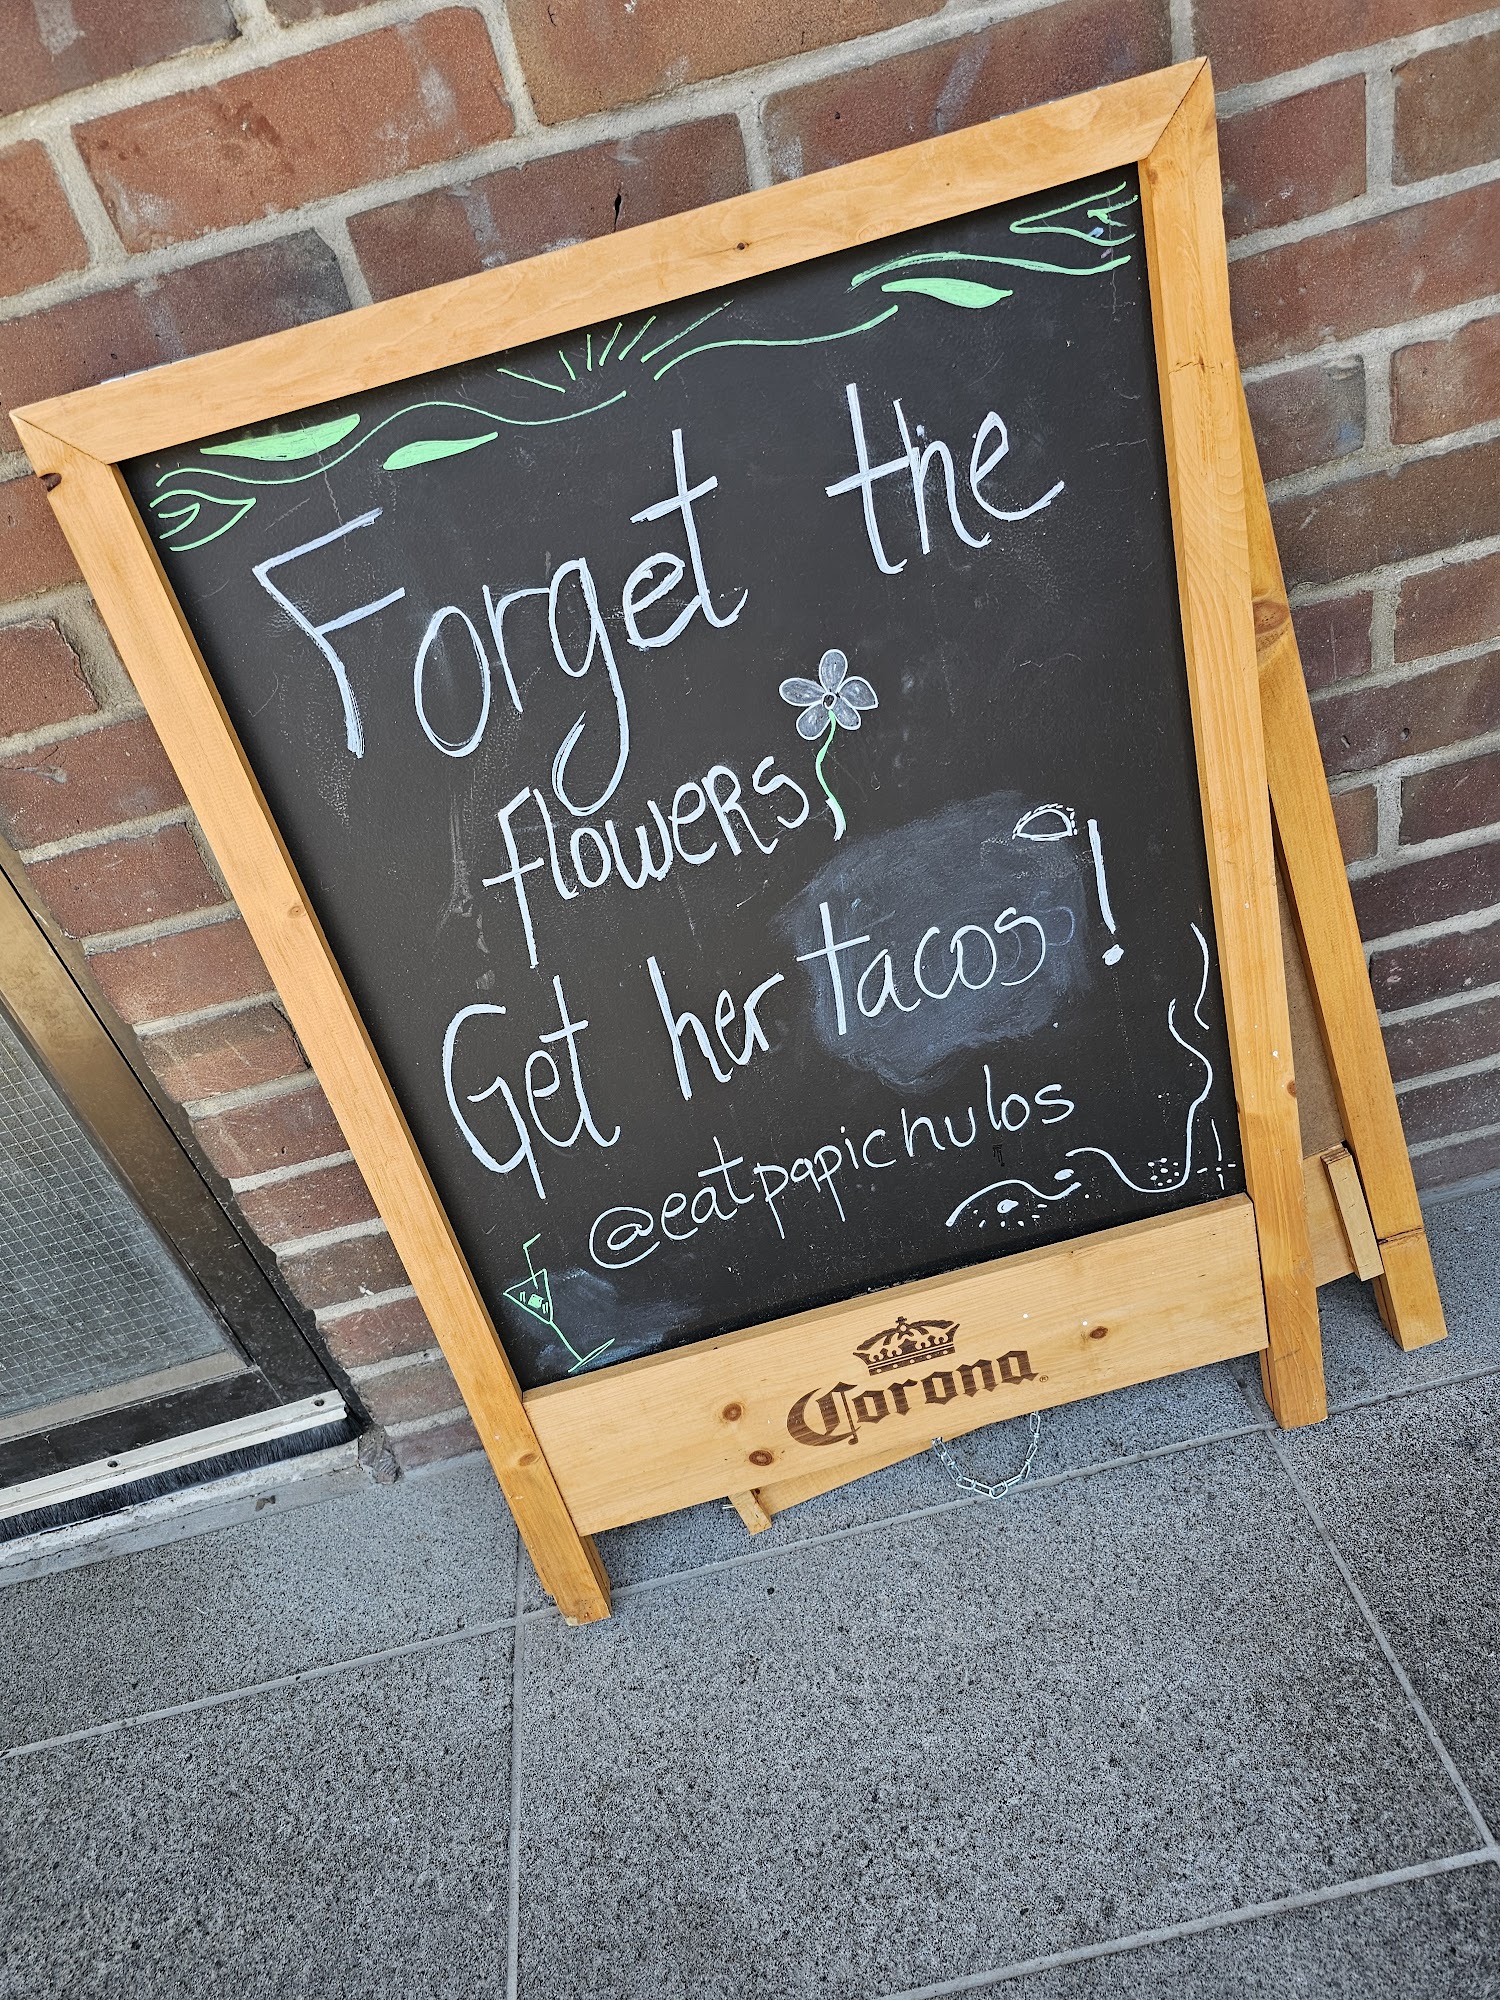 Forget the
flowers,
Get her tacos!
@eatpapichulos
Corona